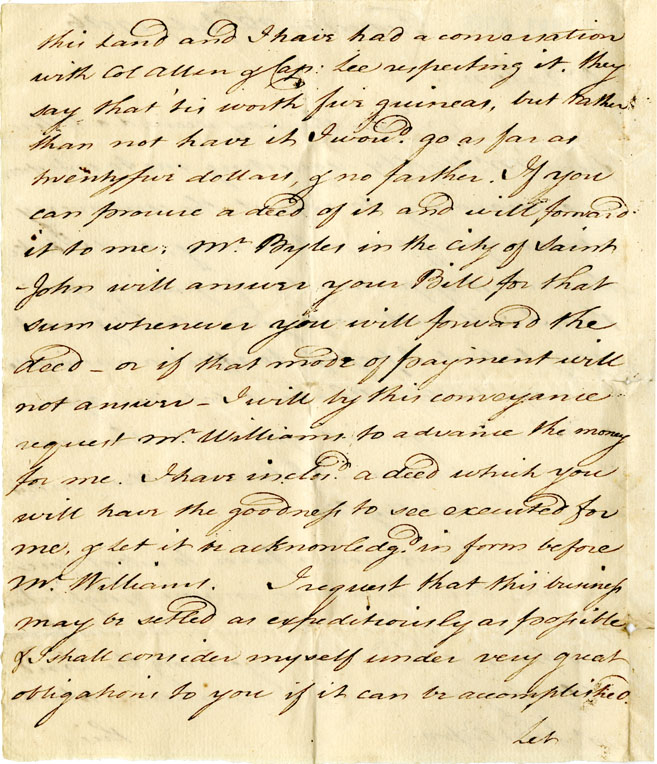 this Land and I have had a conversation
with Col Allen & Cap: Lee respecting it. they
say that 'tis worth five guineas, but rather
than not have it I wou'd go as far as
twenty five dollars, & no farther. If you
can procure a deed of it and will forward
it to me; Mr Byles in the City of Saint
John will answer your Bill for that
sum whenever you will forward the
deed – or if that mode of payment will
not answer – I will by this conveyance
request Mr Williams to advance the money
for me. I have inclos'd a deed which you
will have the goodness to see executed for
me, & let it be acknowledg'd in form before
Mr Williams. I request that this business
may be settled as expeditiously as possible
& I shall consider myself under very great
obligations to you if it can be accomplished.
Let